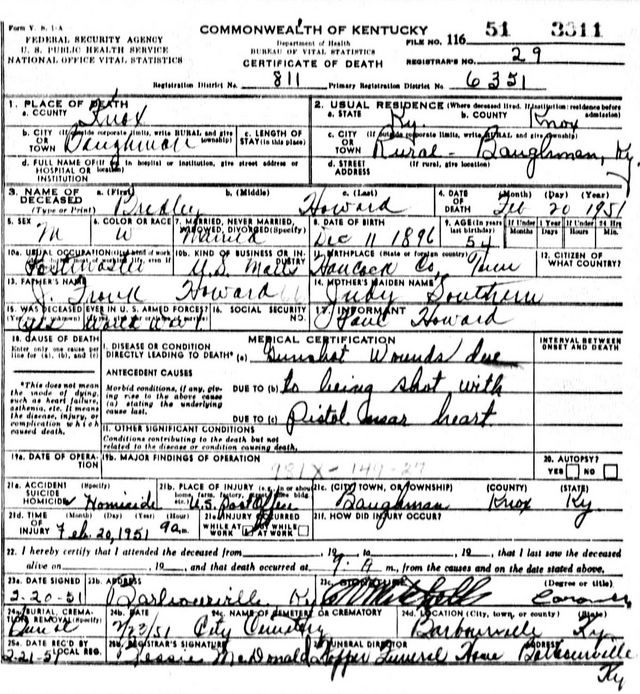 Form V. S. 1-A
FEDERAL SECURITY AGENCY
U. S. PUBLIC HEALTH SERVICE
NATIONAL OFFICE VITAL STATISTICS
COMMONWEALTH OF KENTUCKY
Department of Health
BUREAU OF VITAL STATISTICS
CERTIFICATE OF DEATH
FILE NO. 116 51 3311
REGISTRAR'S NO. 29
Registration District No. 811 Primary Registration District No. 6351
1. PLACE OF DEATH
a. COUNTY Knox
2. USUAL RESIDENCE (Where deceased lived. If institution: residence before admission)
a. STATE Ky. b. COUNTY Knox
b. CITY (If outside corporate limits, write RURAL and give township) OR TOWN Baughman
c. LENGTH OF STAY (in this place)
c. CITY (If outside corporate limits, write RURAL and give township) OR TOWN Rural - Baughman, Ky.
d. FULL NAME OF (If not in hospital or institution, give street address or location) HOSPITAL OR INSTITUTION
d. STREET ADDRESS (If rural, give location)
3. NAME OF DECEASED (Type or Print)
a. (First) Bradley b. (Middle) c. (Last) Howard
4. DATE OF DEATH (Month) (Day) (Year) Feb 20 1951
5. SEX M
6. COLOR OR RACE W
7. MARRIED, NEVER MARRIED, WIDOWED, DIVORCED (Specify) Married
8. DATE OF BIRTH Dec 11 1896
9. AGE (In years last birthday) 54 If Under 1 Year Months Days If Under 24 Hrs. Hours Min.
10a. USUAL OCCUPATION (Give kind of work done during most of working life, even if retired) Postmaster
10b. KIND OF BUSINESS OR INDUSTRY U.S. Mails
11. BIRTHPLACE (State or foreign country) Hancock Co, Tenn
12. CITIZEN OF WHAT COUNTRY?
13. FATHER'S NAME J. Frank Howard
14. MOTHER'S MAIDEN NAME Southern
15. WAS DECEASED EVER IN U. S. ARMED FORCES? World War I
16. SOCIAL SECURITY NO.
17. INFORMANT Paul Howard
18. CAUSE OF DEATH
Enter only one cause per line for (a), (b), and (c)
*This does not mean the mode of dying, such as heart failure, asthenia, etc. It means the disease, injury, or complication which caused death.
MEDICAL CERTIFICATION
INTERVAL BETWEEN ONSET AND DEATH
I. DISEASE OR CONDITION DIRECTLY LEADING TO DEATH* (a) Gunshot Wounds due
ANTECEDENT CAUSES
Morbid conditions, if any, giving rise to the above cause (a) stating the underlying cause last.
DUE TO (b) to being shot with
DUE TO (c) pistol near heart
II. OTHER SIGNIFICANT CONDITIONS
Conditions contributing to the death but not related to the disease or condition causing death.
19a. DATE OF OPERATION
19b. MAJOR FINDINGS OF OPERATION
981X-149-27
20. AUTOPSY?
YES NO
21a. ACCIDENT SUICIDE HOMICIDE (Specify) Homicide
21b. PLACE OF INJURY (e.g., in or about home, farm, factory, street, office bldg., etc.) U.S. Post Office
21c. (CITY, TOWN, OR TOWNSHIP) (COUNTY) (STATE)
Baughman Knox Ky
21d. TIME OF INJURY (Month) (Day) (Year) (Hour) Feb. 20, 1951 9 a m.
21e. INJURY OCCURRED WHILE AT WORK NOT WHILE AT WORK
21f. HOW DID INJURY OCCUR?
22. I hereby certify that I attended the deceased from , 19 to , 19 , that I last saw the deceased
alive on , 19 , and that death occurred at 9. A m., from the causes and on the date stated above.
23a. DATE SIGNED 2-20-51
23b. ADDRESS Barbourville Ky
23c. SIGNATURE (Degree or title) Coroner
24a. BURIAL, CREMATION REMOVAL (Specify) Burial
24b. DATE 2/23/51
24c. NAME OF CEMETERY OR CREMATORY City Cemetery
24d. LOCATION (City, town, or county) (State) Barbourville Ky.
25a. DATE REC'D BY LOCAL REG. 2-21-51
25b. REGISTRAR'S SIGNATURE Jessie McDonald
FUNERAL DIRECTOR ADDRESS Hopper Funeral Home Barbourville
Ky